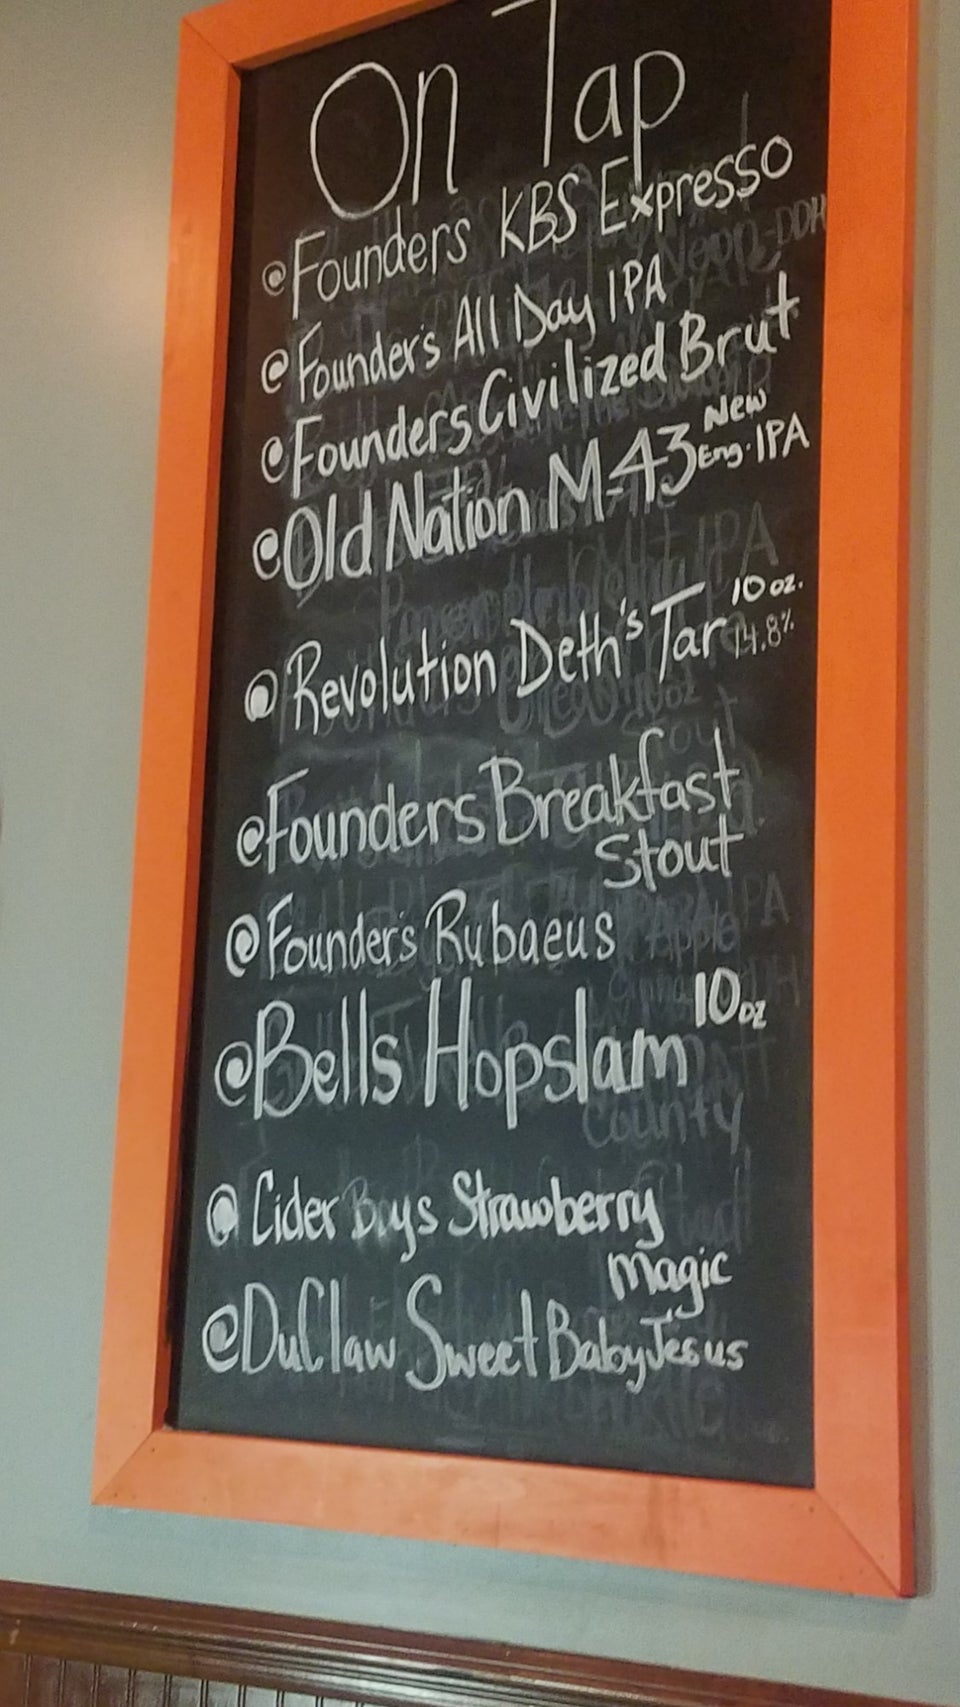 On Tap
@ Founders KBS Expresso
@ Founder's All Day IPA
@ Founders Civilized Brut
@ Old Nation M-43 New Eng. IPA
@ Revolution Deth's Tar 10 oz. 14.8%
@ Founders Breakfast
Stout
@ Founder's Rubaeus
@ Bells Hopslam 10oz
@ Cider Boys Strawberry
Magic
@ DuClaw Sweet Baby Jesus